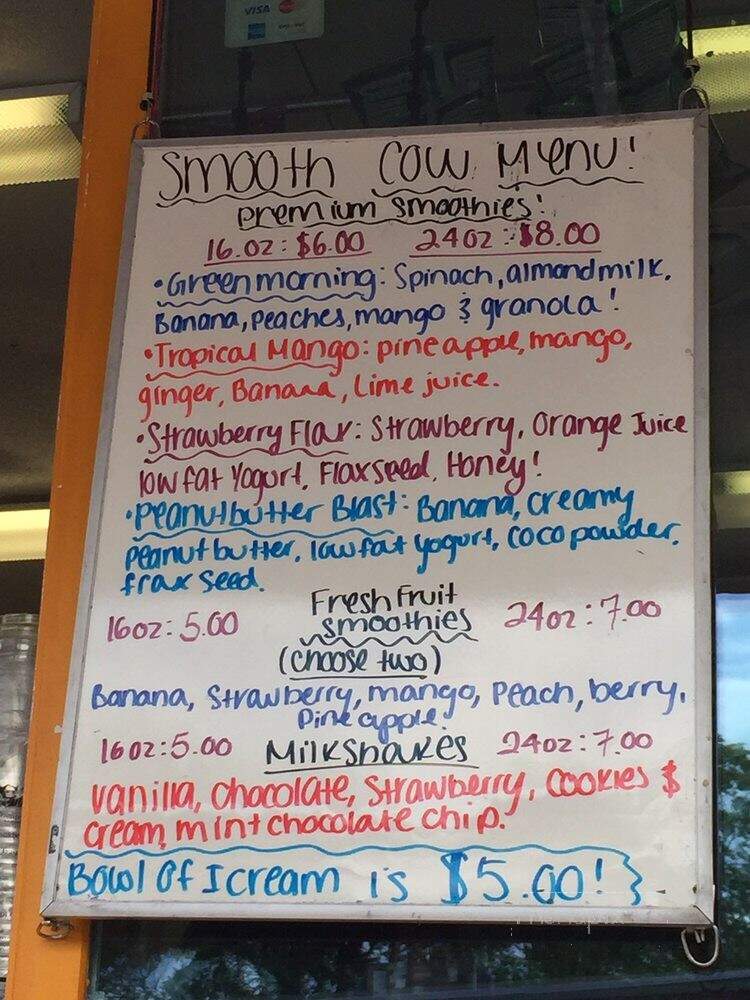 VISA
Smooth Cow Menu!
premium smoothies!
16.oz: $6.00 24oz: $8.00
•Green morning: Spinach, almond milk,
Banana, peaches, mango & granola!
•Tropical Mango: pineapple, mango,
ginger, Banana, Lime juice.
•Strawberry Flax: Strawberry, Orange Juice
low fat Yogurt, Flaxseed, Honey!
•Peanutbutter Blast: Banana, creamy
peanut butter, low fat yogurt, coco powder,
frax seed.
Fresh Fruit
16oz: 5.00 smoothies 24oz: 7.00
(choose two)
Banana, Strawberry, mango, Peach, berry,
Pineapple!
16oz: 5.00 Milkshakes 24oz: 7.00
vanilla, chocolate, Strawberry, cookies &
cream, mint chocolate chip.
Bowl Of Icream is $5.00!